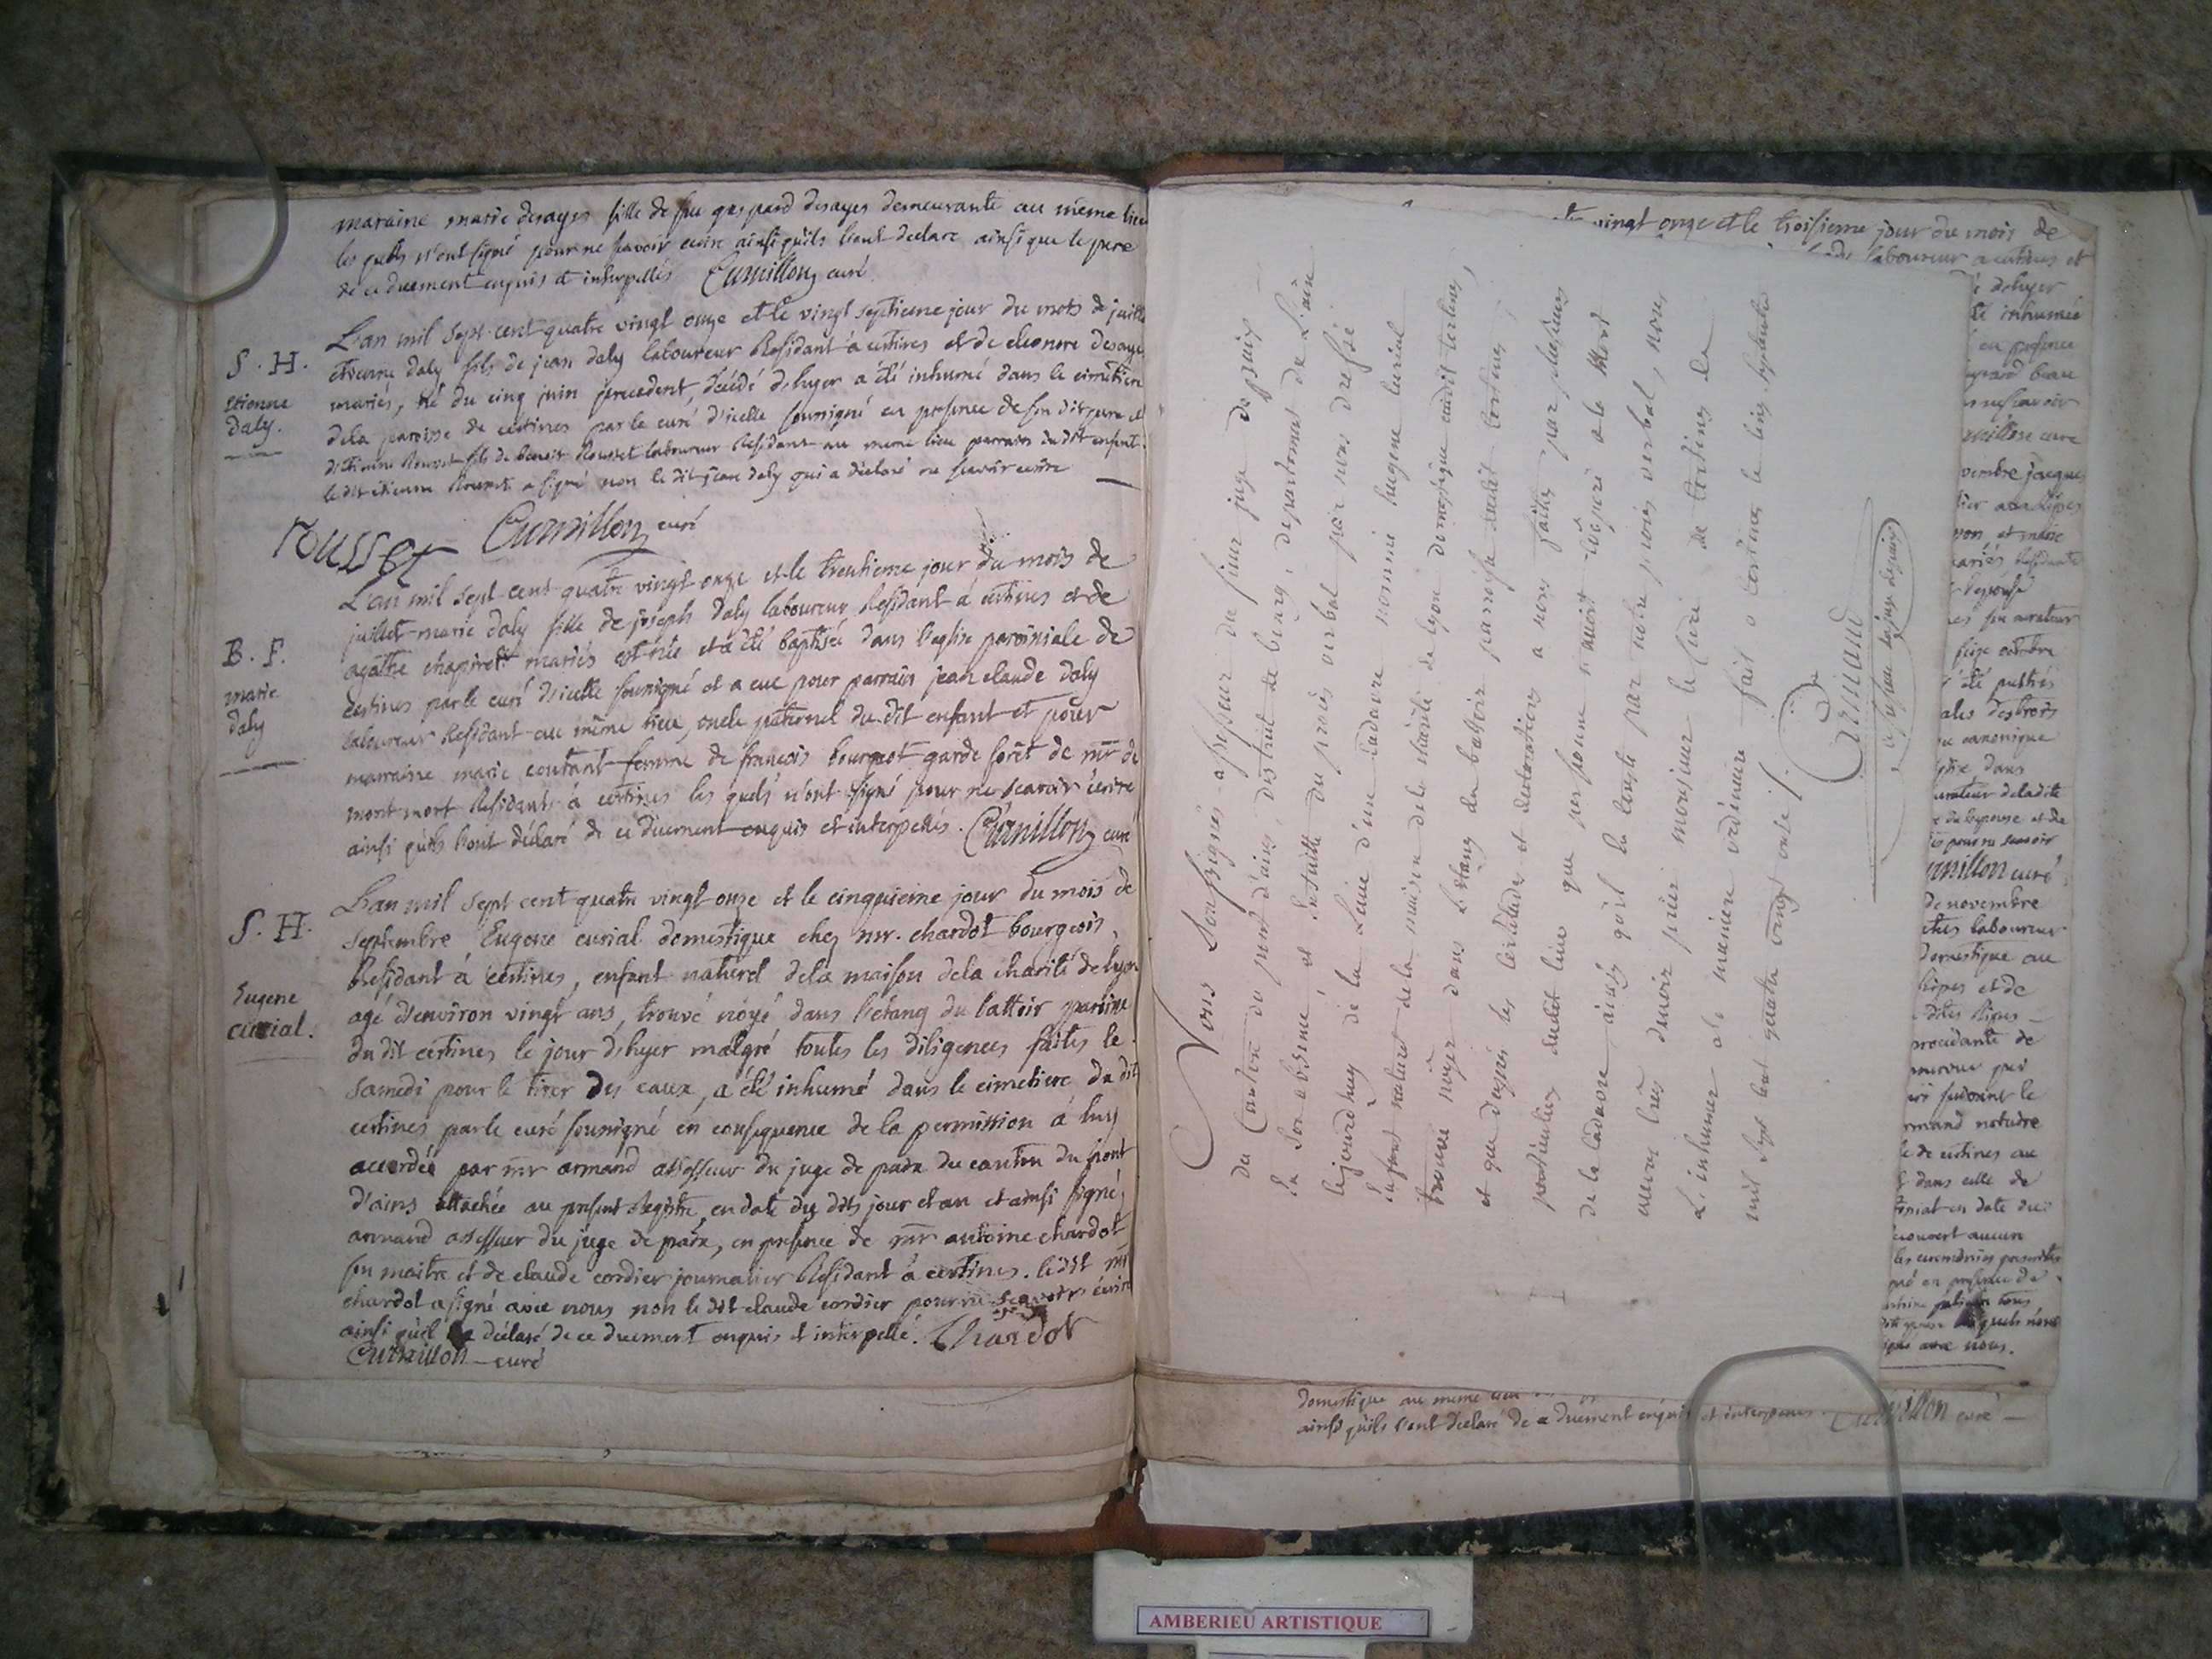 maraine marie desayes fille de feu gaspard desayes demeurante au meme lieu
les quels n'ont signé pour ne scavoir ecrire ainsi quils l'ont declaré ainsi que le pere
de ce duement enquis et interpellés Curnillon curé
S. H.
etienne
daly.
L'an mil sept cent quatre vingt onze et le vingt septieme jour du mois de juillet
etienne daly fils de jean daly laboureur Residant à certines et de eleonore desayes
mariés, né du cinq juin precedent, décédé d'hyer a été inhumé dans le cimetiere
dela paroisse de certines par le curé d'icelle soussigné en presence de son dit pere et
d'etienne Rousset fils de benoit Rousset laboureur Residant au meme lieu parrain du dit enfant.
le dit etienne Rousset a signé non le dit jean daly qui a déclaré ne scavoir ecrire
rousset Curnillon curé
B. F.
marie
daly
L'an mil sept cent quatre vingt onze et le trentieme jour du mois de
juillet marie daly fille de joseph daly laboureur Residant à certines et de
agathe mariés est née et a été baptisée dans l'eglise paroissiale de
certines par le curé d'icelle soussigné et a eue pour parrain jean claude daly
laboureur Residant au même lieu, oncle paternel du dit enfant et pour
marraine marie coutant femme de francois bourgeot garde forêt de mr de
mont mort Residants à certines les quels n'ont signé pour ne scavoir écrire
ainsi quils l'ont déclaré de ce duement enquis et interpellés. Curnillon curé
S. H.
Eugene
curial.
L'an mil sept cent quatre vingt onze et le cinquieme jour du mois de
septembre Eugene curial domestique chez mr. chardot bourgeois,
Residant à certines, enfant naturel dela maison dela charité de lyon
agé d'environ vingt ans, trouvé noyé dans l'étang du battoir paroisse
du dit certines le jour d'hyer malgré toutes les diligences faites le
samedi pour le tirer des eaux, a été inhumé dans le cimetiere du dit
certines par le curé soussigné en consequence de la permission à luy
accordée par mr armand assesseur du juge de paix du canton du pont
d'ains attachée au present Registre, en date du dits jour et an et ainsi signé,
armand assesseur du juge de paix, en presence de mr antoine chardot
son maitre et de claude cordier journalier Residant à certines. le dit mr
chardot a signé avec nous non le dit claude cordier pour ne scavoir écrire
ainsi qu'il l'a déclaré de ce duement enquis et interpellé. Chardot
Curnillon curé
Nous soussignés assesseur du sieur juge de paix
du Canton du pont d'ains, district de bourg, departement de L'ain
en son absence et ensuitte du procès verbal par nous dressé
cejourd'huy de la Levée d'un Cadavre nommé hugene curial
enfant naturel de la maison dela charité de lyon domestique audit certines,
trouvé noyé dans L'étang du battoir paroisse dudit certines,
et que d'après les certitudes et declarations a nous faittes par plusieurs
particuliers dudit lieu que personne n'avoit coopéré a la Mort
de la Cadavre ainsy qu'il en conste par notre procès verbal, nous
avons crû devoir prier monsieur le Curé de Certines de
L'inhumer a la maniere ordinaire fait a Certines le cinq septembre
mil sept cent quatre vingt onze /.
Armand
assesseur du juge de paix
vingt onze et le troisieme jour du mois de
laboureur a certines et
d'hyer
été inhumé
en presence
vembre jacque
Residants
l'epouse
seize octobre
été publiés
canonique
dans
dela dite
de l'epouse et de
pour ne scavoir
Curnillon curé
de novembre
laboureur
domestique au
et de
procédante de
suivant le
de certines au
dans celle de
en date du
aucun
en presence de
quels n'ont
avec nous.
domestique au meme lieu
ainsi quils l'ont declaré de ce duement enquis et interpellés Curnillon curé
AMBERIEU ARTISTIQUE